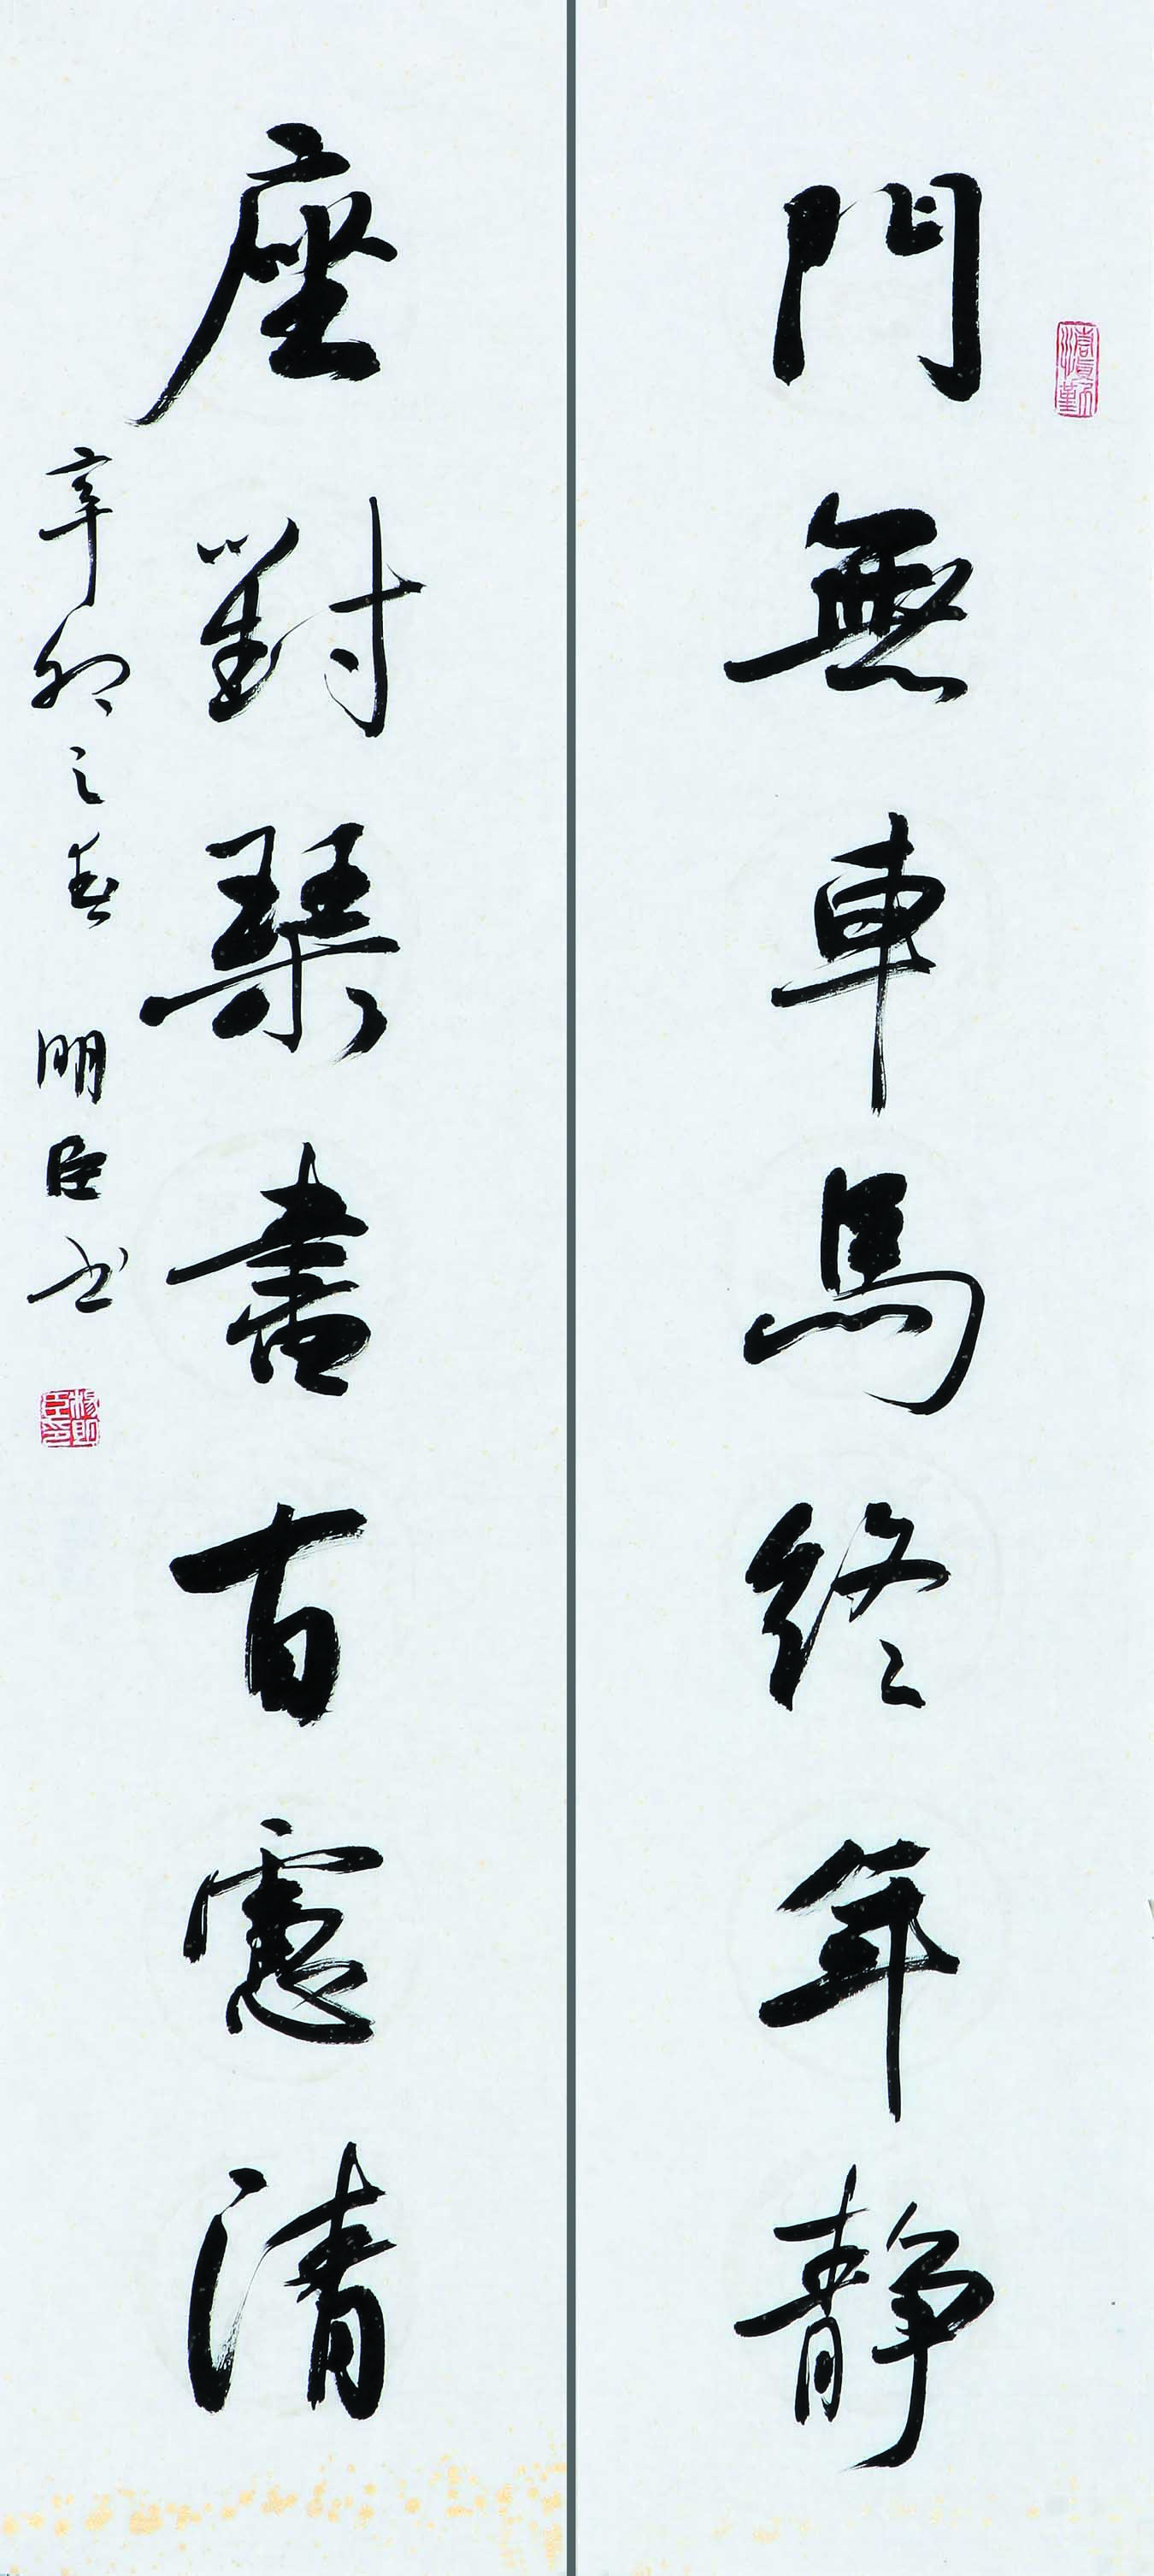 門無車馬終年静
座對琴書百慮清
辛卯之春 明臣书